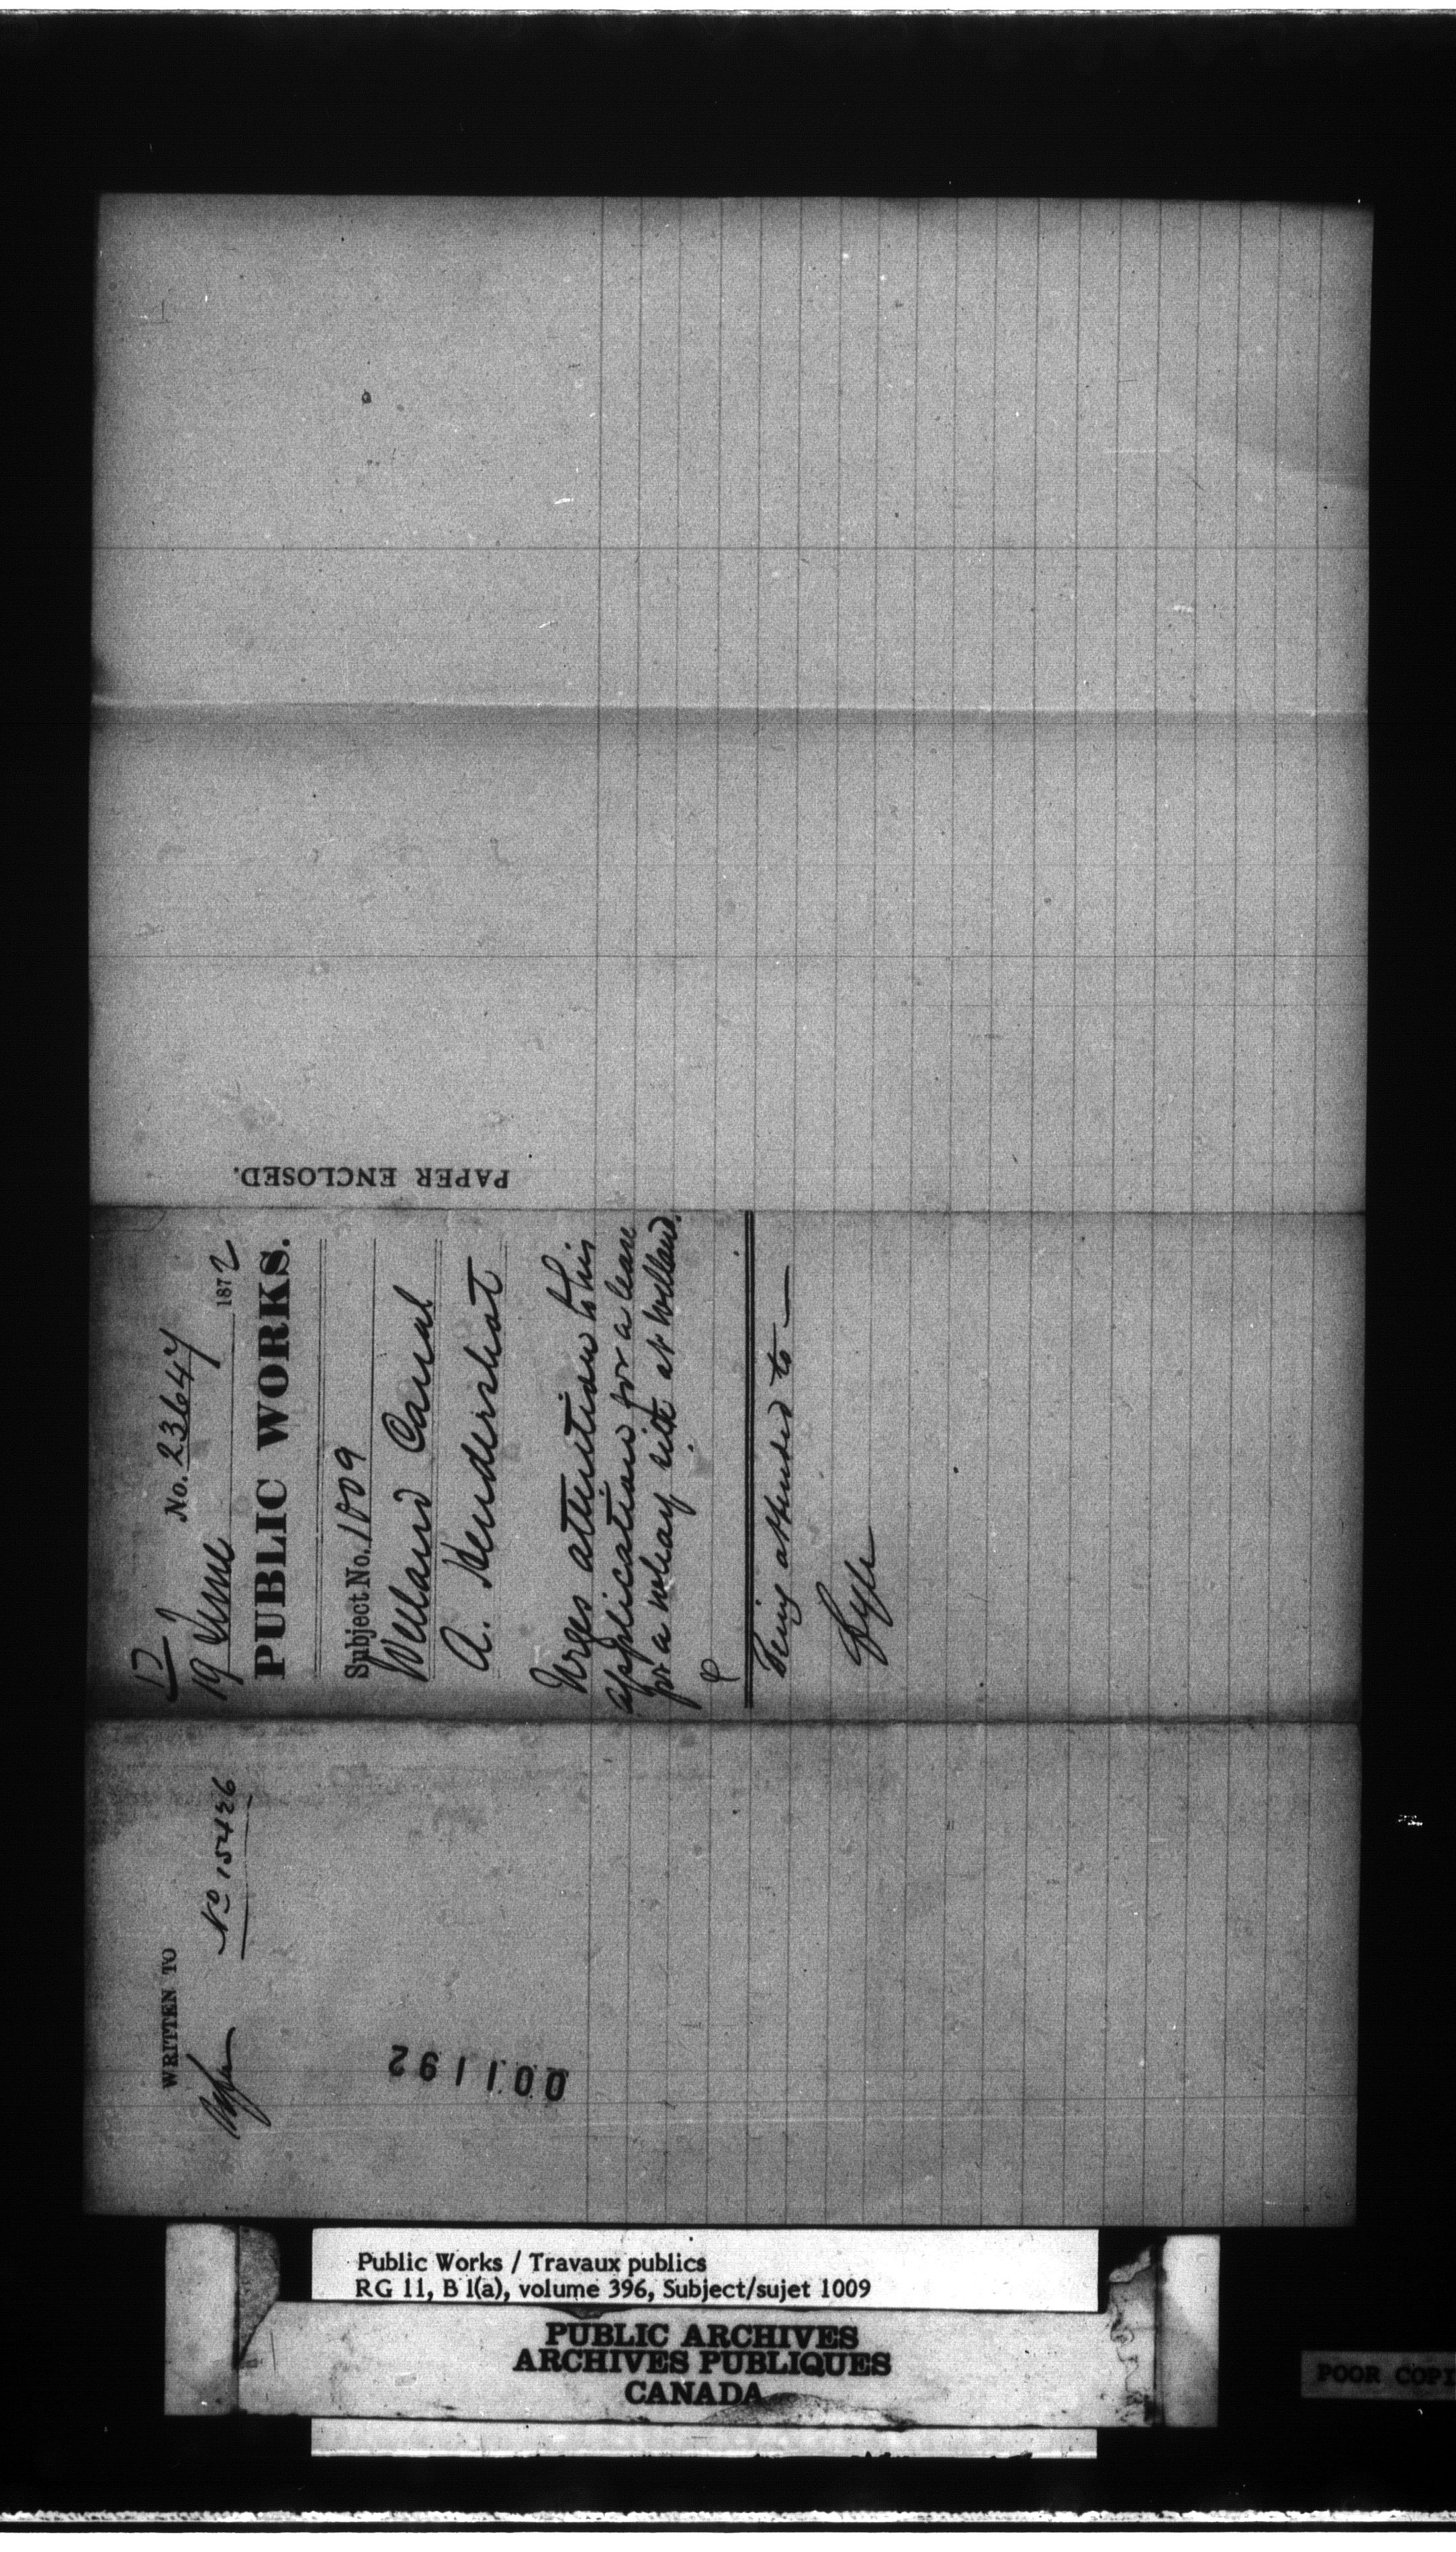 PAPER ENCLOSED.
No. 23647
19 June 1872
PUBLIC WORKS.
Subject No. 1009
Welland Canal
A. Hendershot
Urges attention to his
application for a lease
for a wharf site at Welland.
Being attended to —
WRITTEN TO
No 15426
001192
Public Works / Travaux publics
RG 11, B 1(a), volume 396, Subject/sujet 1009
PUBLIC ARCHIVES
ARCHIVES PUBLIQUES
CANADA
POOR COP